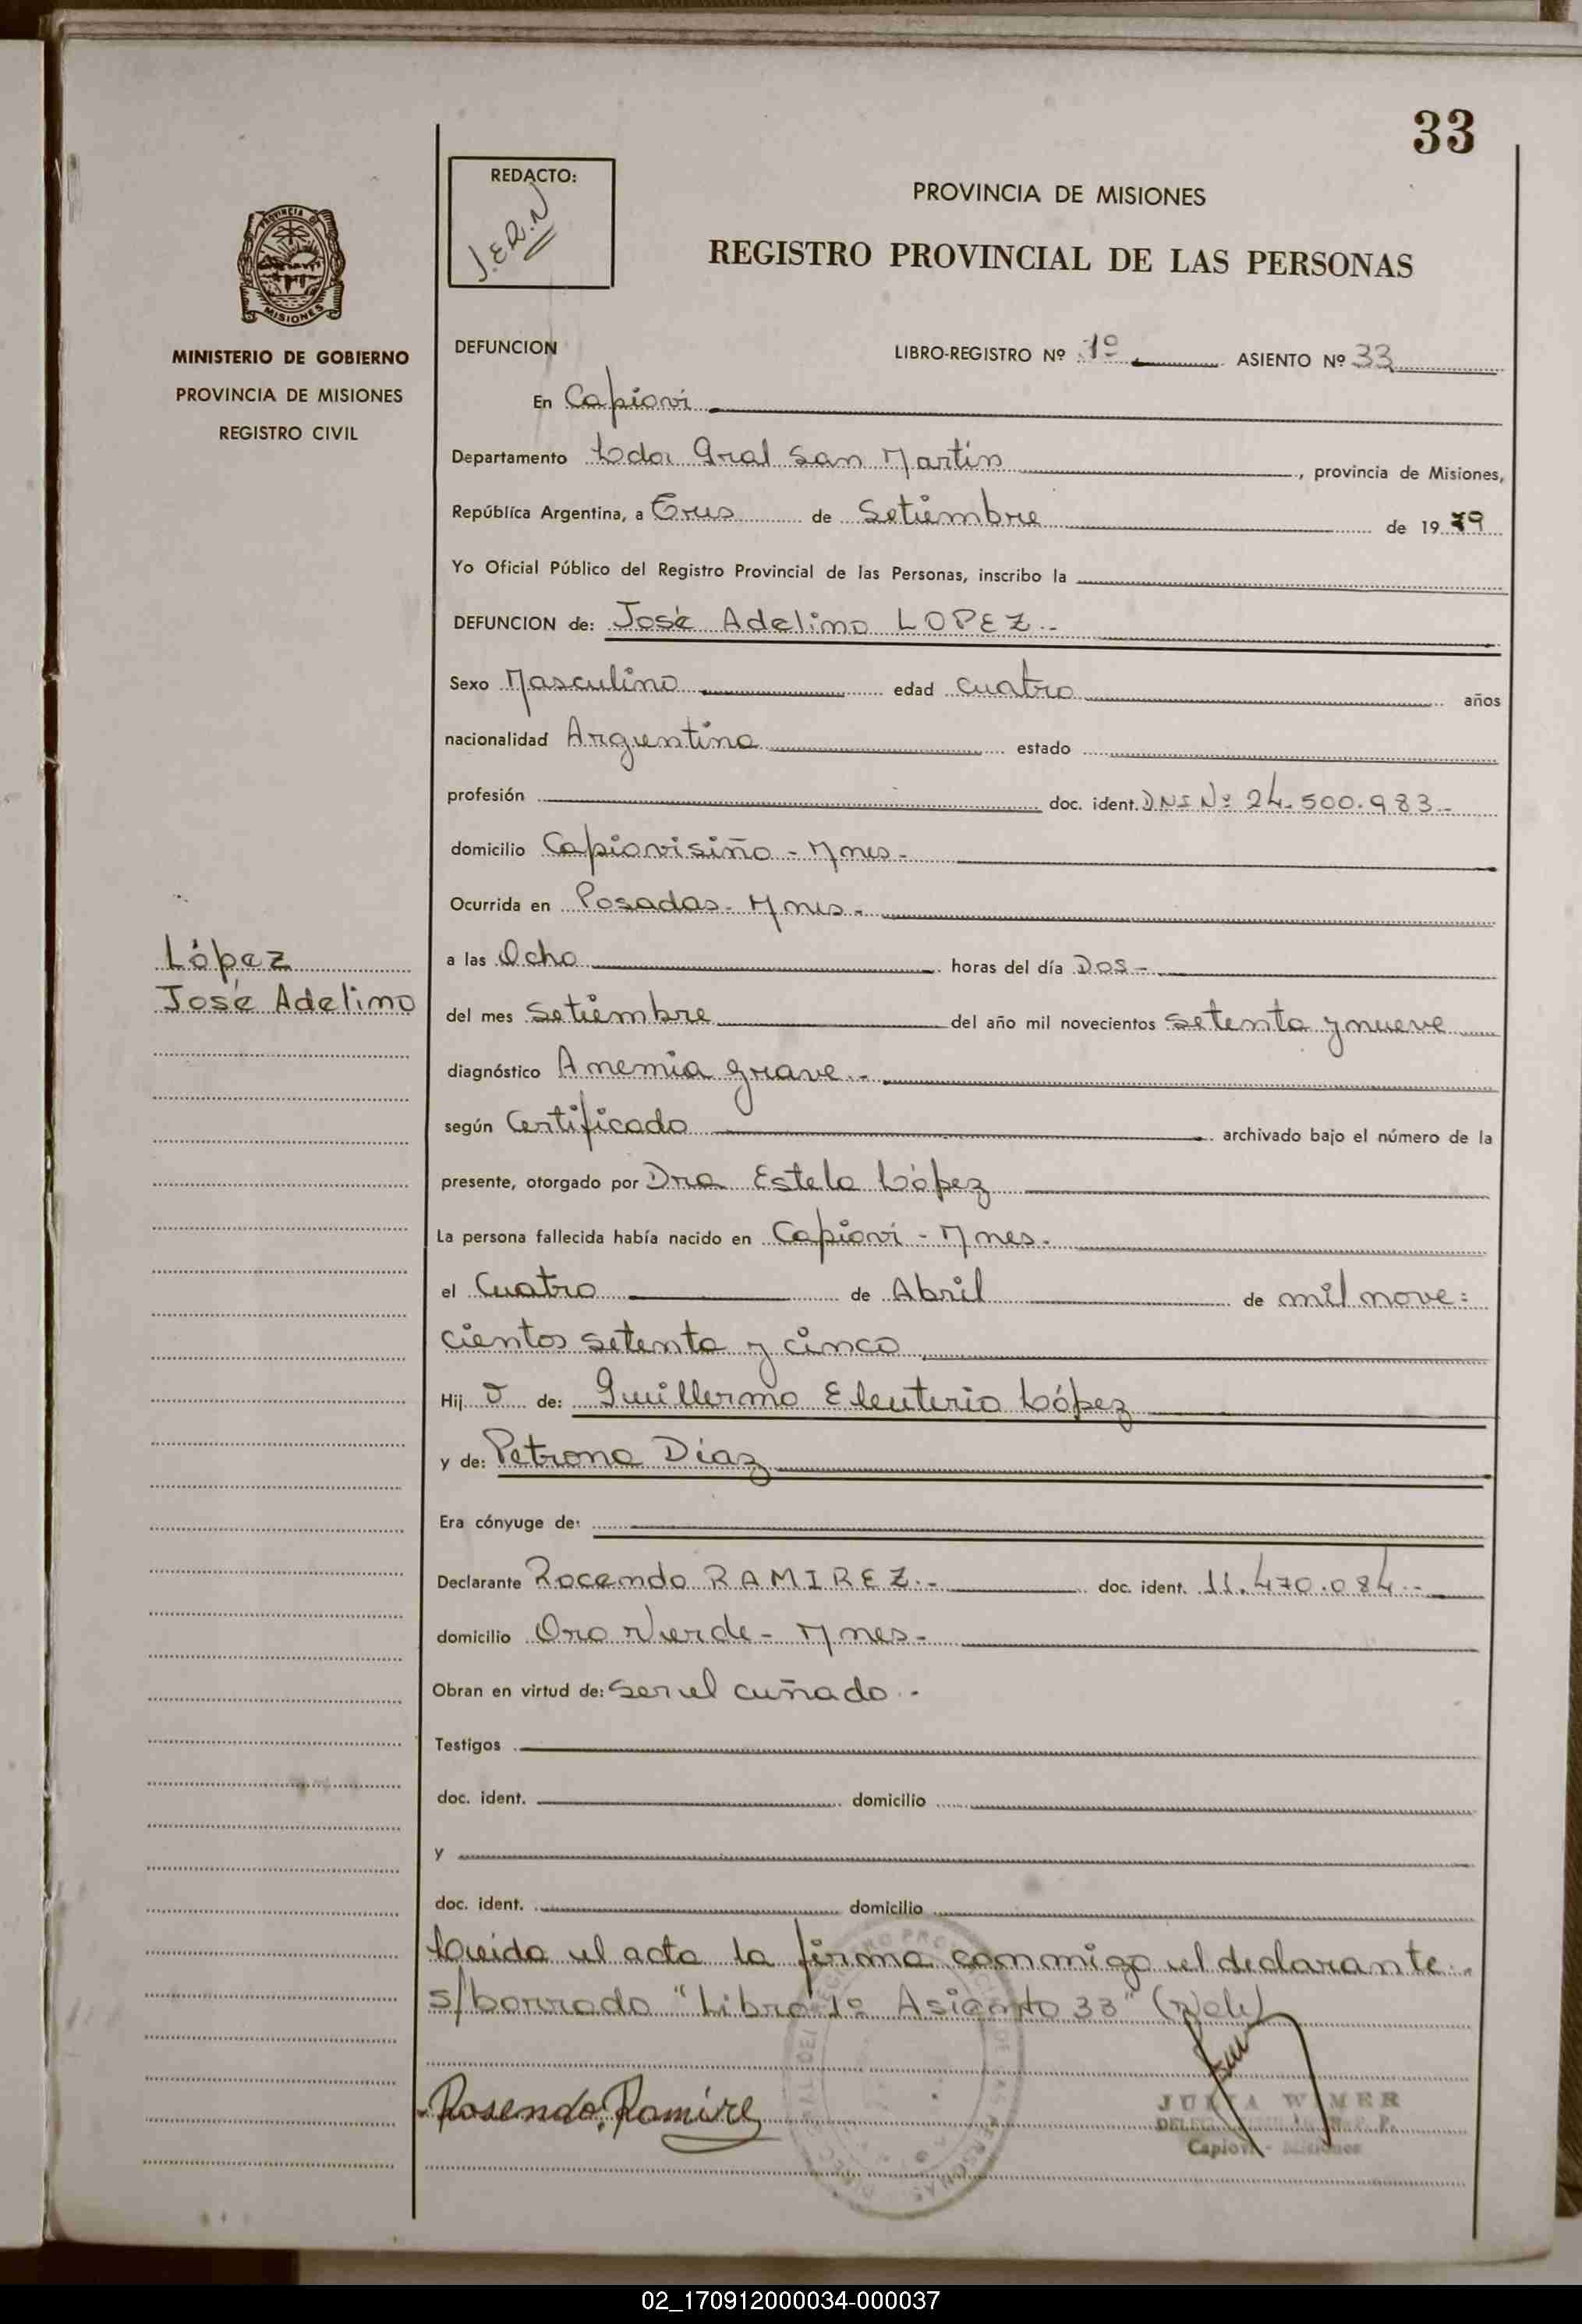 33
REDACTO:
J.E.R.N
PROVINCIA DE MISIONES
REGISTRO PROVINCIAL DE LAS PERSONAS
PROVINCIA DE
MISIONES
MINISTERIO DE GOBIERNO
PROVINCIA DE MISIONES
REGISTRO CIVIL
DEFUNCION LIBRO-REGISTRO Nº 1º ASIENTO Nº 33
En Capioví
Departamento Ldor Gral San Martín, provincia de Misiones,
República Argentina, a Tres de Setiembre de 1979
Yo Oficial Público del Registro Provincial de las Personas, inscribo la
DEFUNCION de: José Adelino LOPEZ.-
Sexo Masculino edad cuatro años
nacionalidad Argentina estado
profesión doc. ident. DNI Nº 24.500.983-
domicilio Capiovisiño - Mnes-
Ocurrida en Posadas- Mnes-
a las Ocho horas del día Dos-
del mes Setiembre del año mil novecientos setenta y nueve
diagnóstico Anemia grave.-
según Certificado archivado bajo el número de la
presente, otorgado por Dra Estela López
La persona fallecida había nacido en Capioví - Mnes.
el Cuatro de Abril de mil nove=
cientos setenta y cinco
Hij o de: Guillermo Eleuterio López
y de: Petrona Díaz
Era cónyuge de:
Declarante Rocendo RAMIREZ.- doc. ident. 11.470.084.-
domicilio Oro Verde- Mnes-
Obran en virtud de: ser el cuñado.-
Testigos
doc. ident. domicilio
y
doc. ident. domicilio
Leída el acta la firma conmigo el declarante.
s/borrado "Libro 1º Asiento 33" (Vale)
Rosendo Ramirez
JULIA W MER
Capioví - Misiones
López
José Adelino
02_170912000034-000037